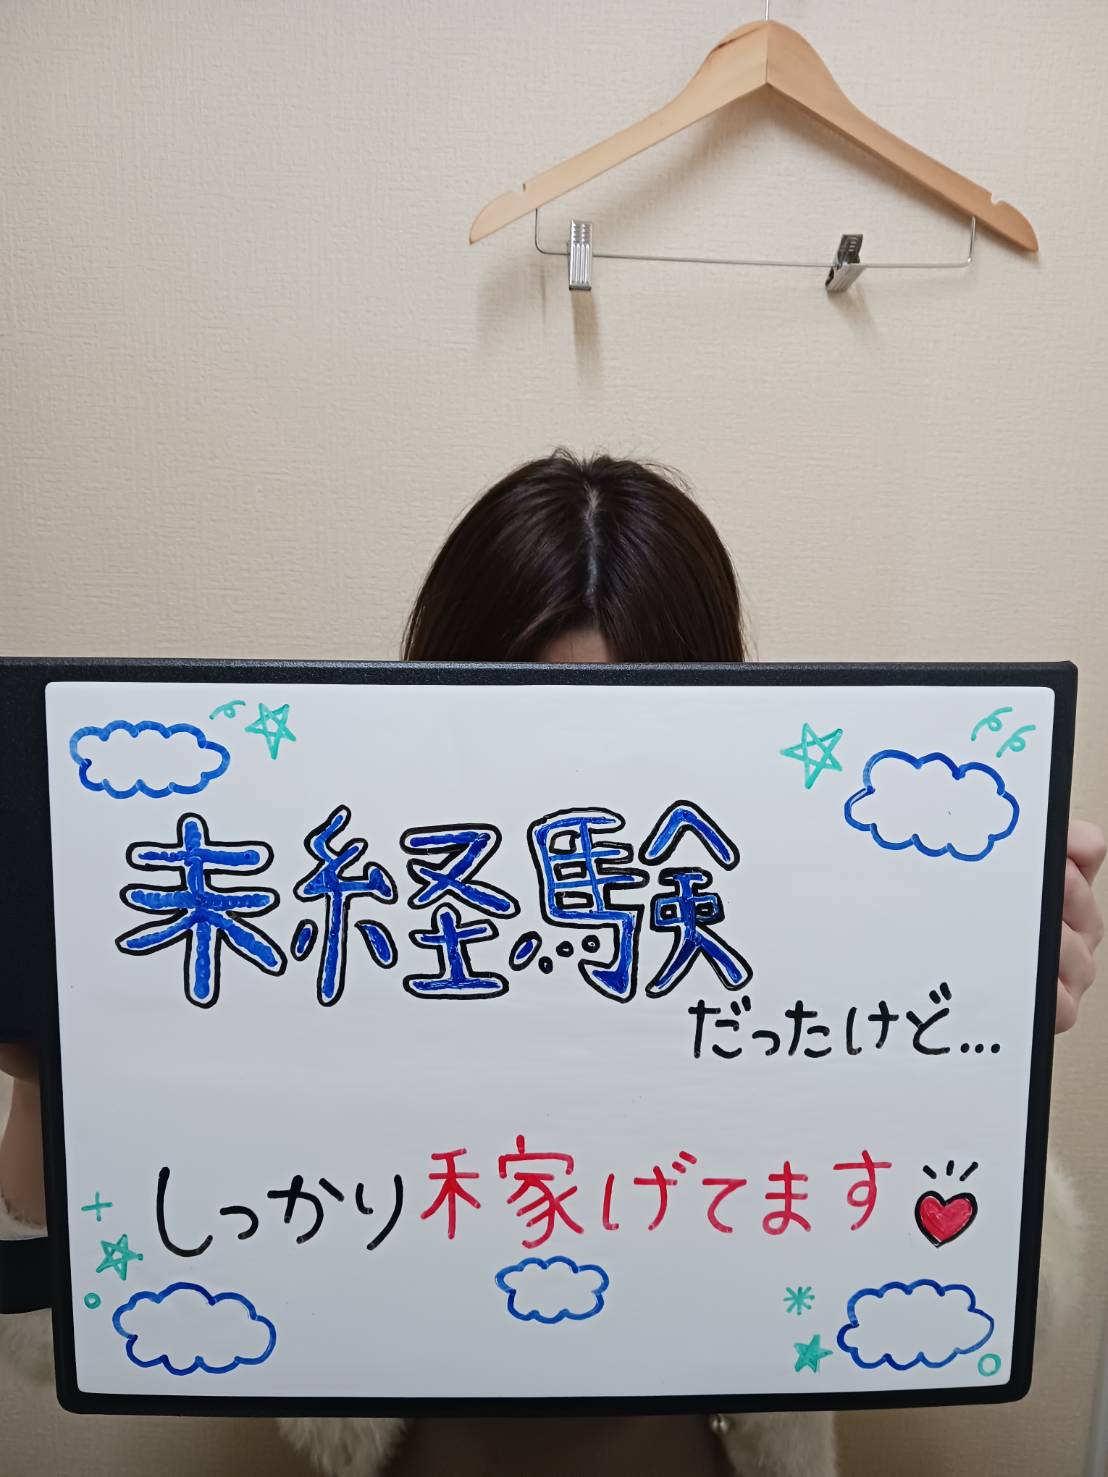 未経験
だったけど...
しっかり稼げてます